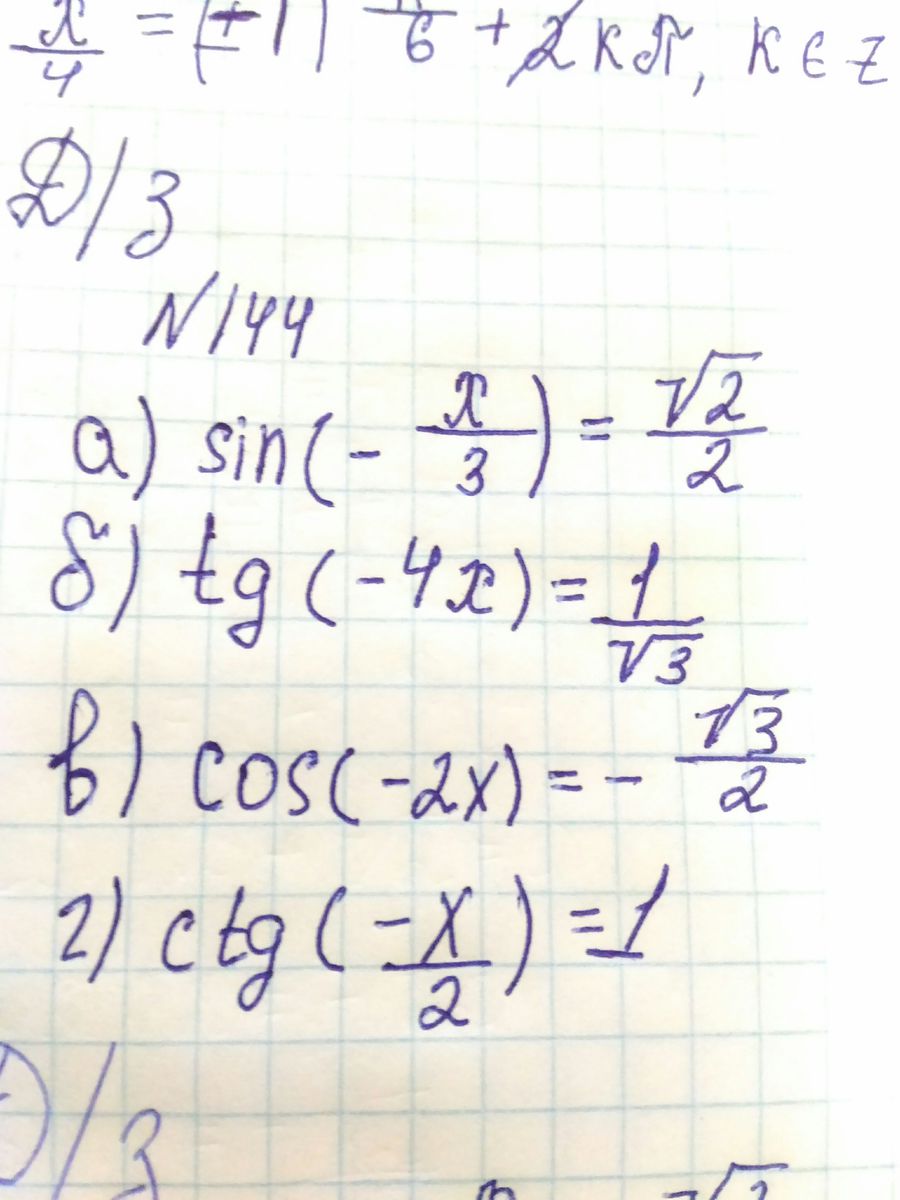 x/4 = (±1) π/6 + 2kπ, k ∈ z
Д/з
N144
а) sin(-x/3) = √2/2
б) tg(-4x) = 1/√3
в) cos(-2x) = -√3/2
г) ctg(-x/2) = 1
Д/з